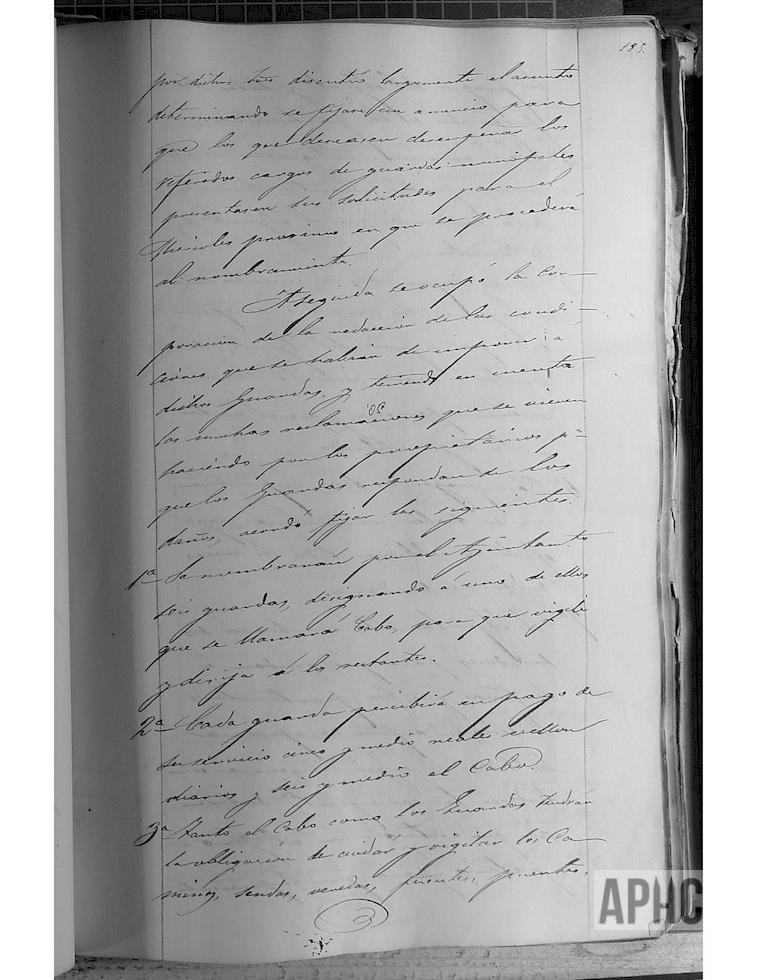 185.
por dichos tres discutió largamente el asunto
determinando se fijase un anuncio para
que los que deseasen desempeñar los
referidos cargos de guardas municipales
presentasen sus solicitudes para el
Miércoles procsimo en que se procederá
al nombramiento.
Aseguida se ocupó la Cor-
poracion de la redaccion de las condi-
ciones que se habian de imponer á
dichos Guardas, y teniendo en cuenta
las muchas reclamaciones que se vienen
haciendo por los propietarios pª
que los Guardas respondan de los
daños, acordó fijar las siguientes.
1ª Se nombrarán por el Ayuntamto
seis guardas, designando á uno de ellos
que se llamará Cabo, para que vigile
y dirija á los restantes.
2ª Cada guarda percibirá en pago de
su servicio cinco y medio reales vellon
diarios y seis y medio el Cabo.
3ª Tanto el Cabo como los Guardas tendrán
la obligacion de cuidar y vigilar los Ca-
minos, sendas, veredas, fuentes, puentes,
APHC